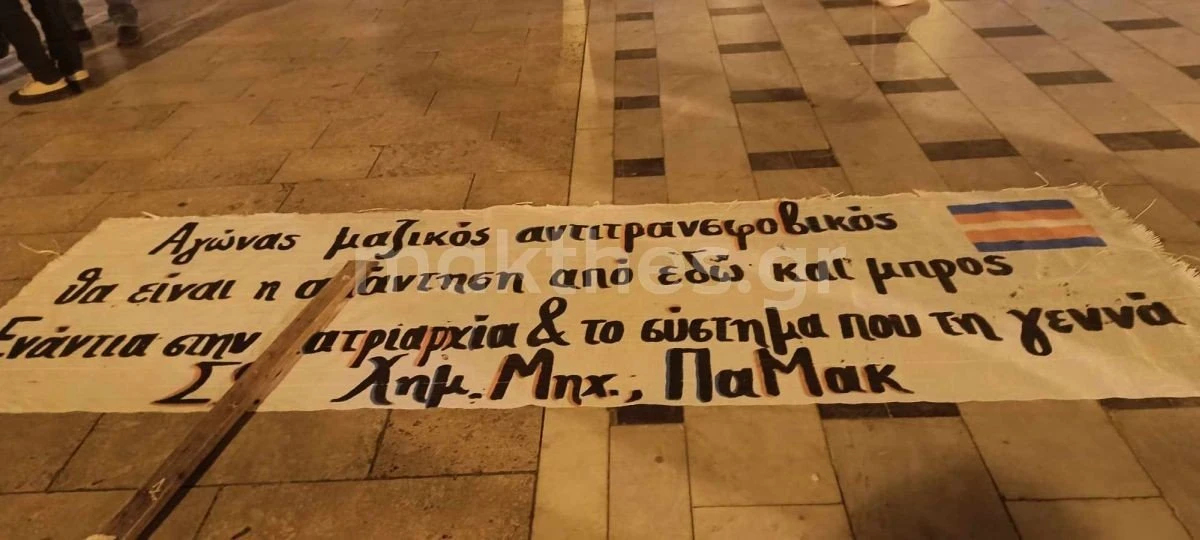 Αγώνας μαζικός αντιτρανσφοβικός
θα είναι η απάντηση από εδώ και μπρος
Ενάντια στην πατριαρχία & το σύστημα που τη γεννά
Χημ. Μηχ., ΠαΜακ
makthes.gr